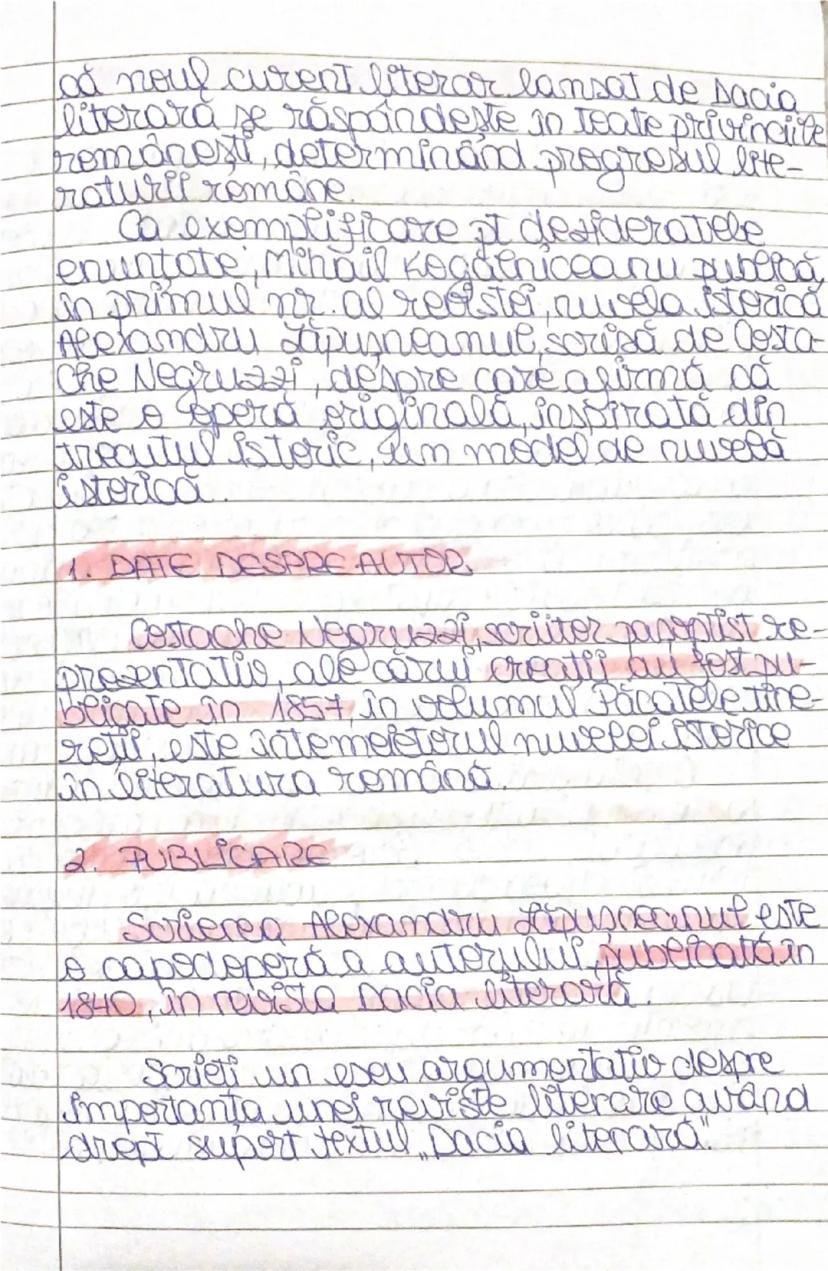 că noul curent literar lansat de Dacia
literară se răspândește în toate privinciile
românești, determinând progresul lite-
raturii române
Ca exemplificare pt desideratele
enunțate, Mihail Kogălniceanu publică,
în primul nr. al revistei, nuvela istorică
Alexandru Lăpușneanul, scrisă de Costa-
che Negruzzi, despre care afirmă că
este o operă originală, inspirată din
trecutul istoric, un model de nuvelă
istorică.
1. DATE DESPRE AUTOR
Costache Negruzzi, scriitor pașoptist re-
prezentativ, ale cărui creații au fost pu-
blicate în 1857, în volumul Păcatele tine-
reții, este întemeietorul nuvelei istorice
în literatura română.
2. PUBLICARE
Scrierea Alexandru Lăpușneanul este
o capodoperă a autorului, publicată în
1840, în revista Dacia literară.
Scrieți un eseu argumentativ despre
importanța unei reviste literare având
drept suport textul „Dacia literară"